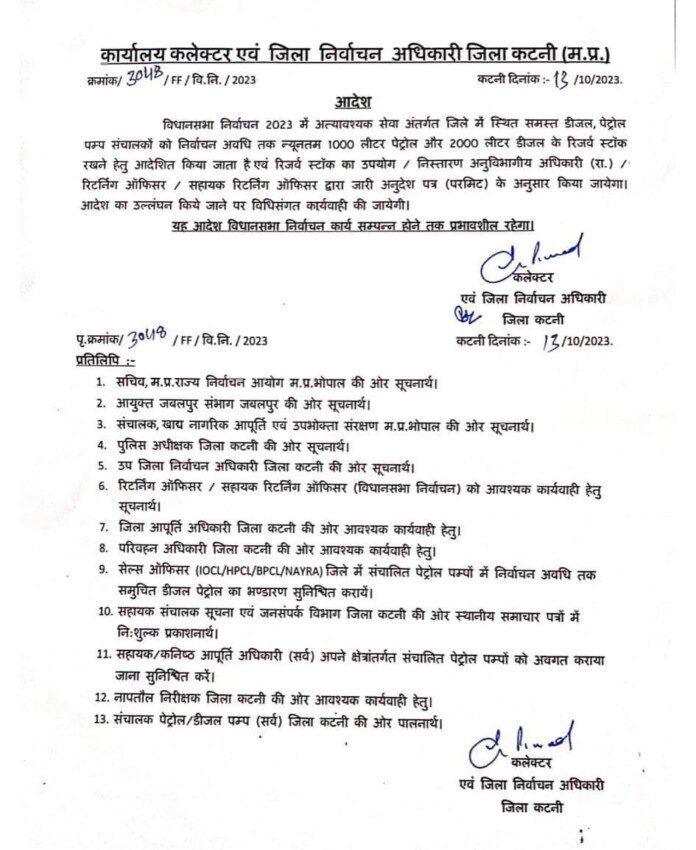 कार्यालय कलेक्टर एवं जिला निर्वाचन अधिकारी जिला कटनी (म.प्र.)
क्रमांक/ 3048 / FF / वि.नि. / 2023 कटनी दिनांक :- 13 /10/2023.
आदेश
विधानसभा निर्वाचन 2023 में अत्यावश्यक सेवा अंतर्गत जिले में स्थित समस्त डीजल, पेट्रोल
पम्प संचालकों को निर्वाचन अवधि तक न्यूनतम 1000 लीटर पेट्रोल और 2000 लीटर डीजल के रिजर्व स्टॉक
रखने हेतु आदेशित किया जाता है एवं रिजर्व स्टॉक का उपयोग / निस्तारण अनुविभागीय अधिकारी (रा.) /
रिटर्निंग ऑफिसर / सहायक रिटर्निंग ऑफिसर द्वारा जारी अनुदेश पत्र (परमिट) के अनुसार किया जायेगा।
आदेश का उल्लंघन किये जाने पर विधिसंगत कार्यवाही की जायेगी।
यह आदेश विधानसभा निर्वाचन कार्य सम्पन्न होने तक प्रभावशील रहेगा।
कलेक्टर
एवं जिला निर्वाचन अधिकारी
जिला कटनी
पृ.क्रमांक/ 3048 / FF / वि.नि. / 2023 कटनी दिनांक :- 13/10/2023.
प्रतिलिपि :-
1. सचिव, म.प्र.राज्य निर्वाचन आयोग म.प्र.भोपाल की ओर सूचनार्थ।
2. आयुक्त जबलपुर संभाग जबलपुर की ओर सूचनार्थ।
3. संचालक, खाद्य नागरिक आपूर्ति एवं उपभोक्ता संरक्षण म.प्र.भोपाल की ओर सूचनार्थ।
4. पुलिस अधीक्षक जिला कटनी की ओर सूचनार्थ।
5. उप जिला निर्वाचन अधिकारी जिला कटनी की ओर सूचनार्थ।
6. रिटर्निंग ऑफिसर / सहायक रिटर्निंग ऑफिसर (विधानसभा निर्वाचन) को आवश्यक कार्यवाही हेतु
सूचनार्थ।
7. जिला आपूर्ति अधिकारी जिला कटनी की ओर आवश्यक कार्यवाही हेतु।
8. परिवहन अधिकारी जिला कटनी की ओर आवश्यक कार्यवाही हेतु।
9. सेल्स ऑफिसर (IOCL/HPCL/BPCL/NAYRA) जिले में संचालित पेट्रोल पम्पों में निर्वाचन अवधि तक
समुचित डीजल पेट्रोल का भण्डारण सुनिश्चित करायें।
10. सहायक संचालक सूचना एवं जनसंपर्क विभाग जिला कटनी की ओर स्थानीय समाचार पत्रों में
निःशुल्क प्रकाशनार्थ।
11. सहायक/कनिष्ठ आपूर्ति अधिकारी (सर्व) अपने क्षेत्रांतर्गत संचालित पेट्रोल पम्पों को अवगत कराया
जाना सुनिश्चित करें।
12. नापतौल निरीक्षक जिला कटनी की ओर आवश्यक कार्यवाही हेतु।
13. संचालक पेट्रोल/डीजल पम्प (सर्व) जिला कटनी की ओर पालनार्थ।
कलेक्टर
एवं जिला निर्वाचन अधिकारी
जिला कटनी